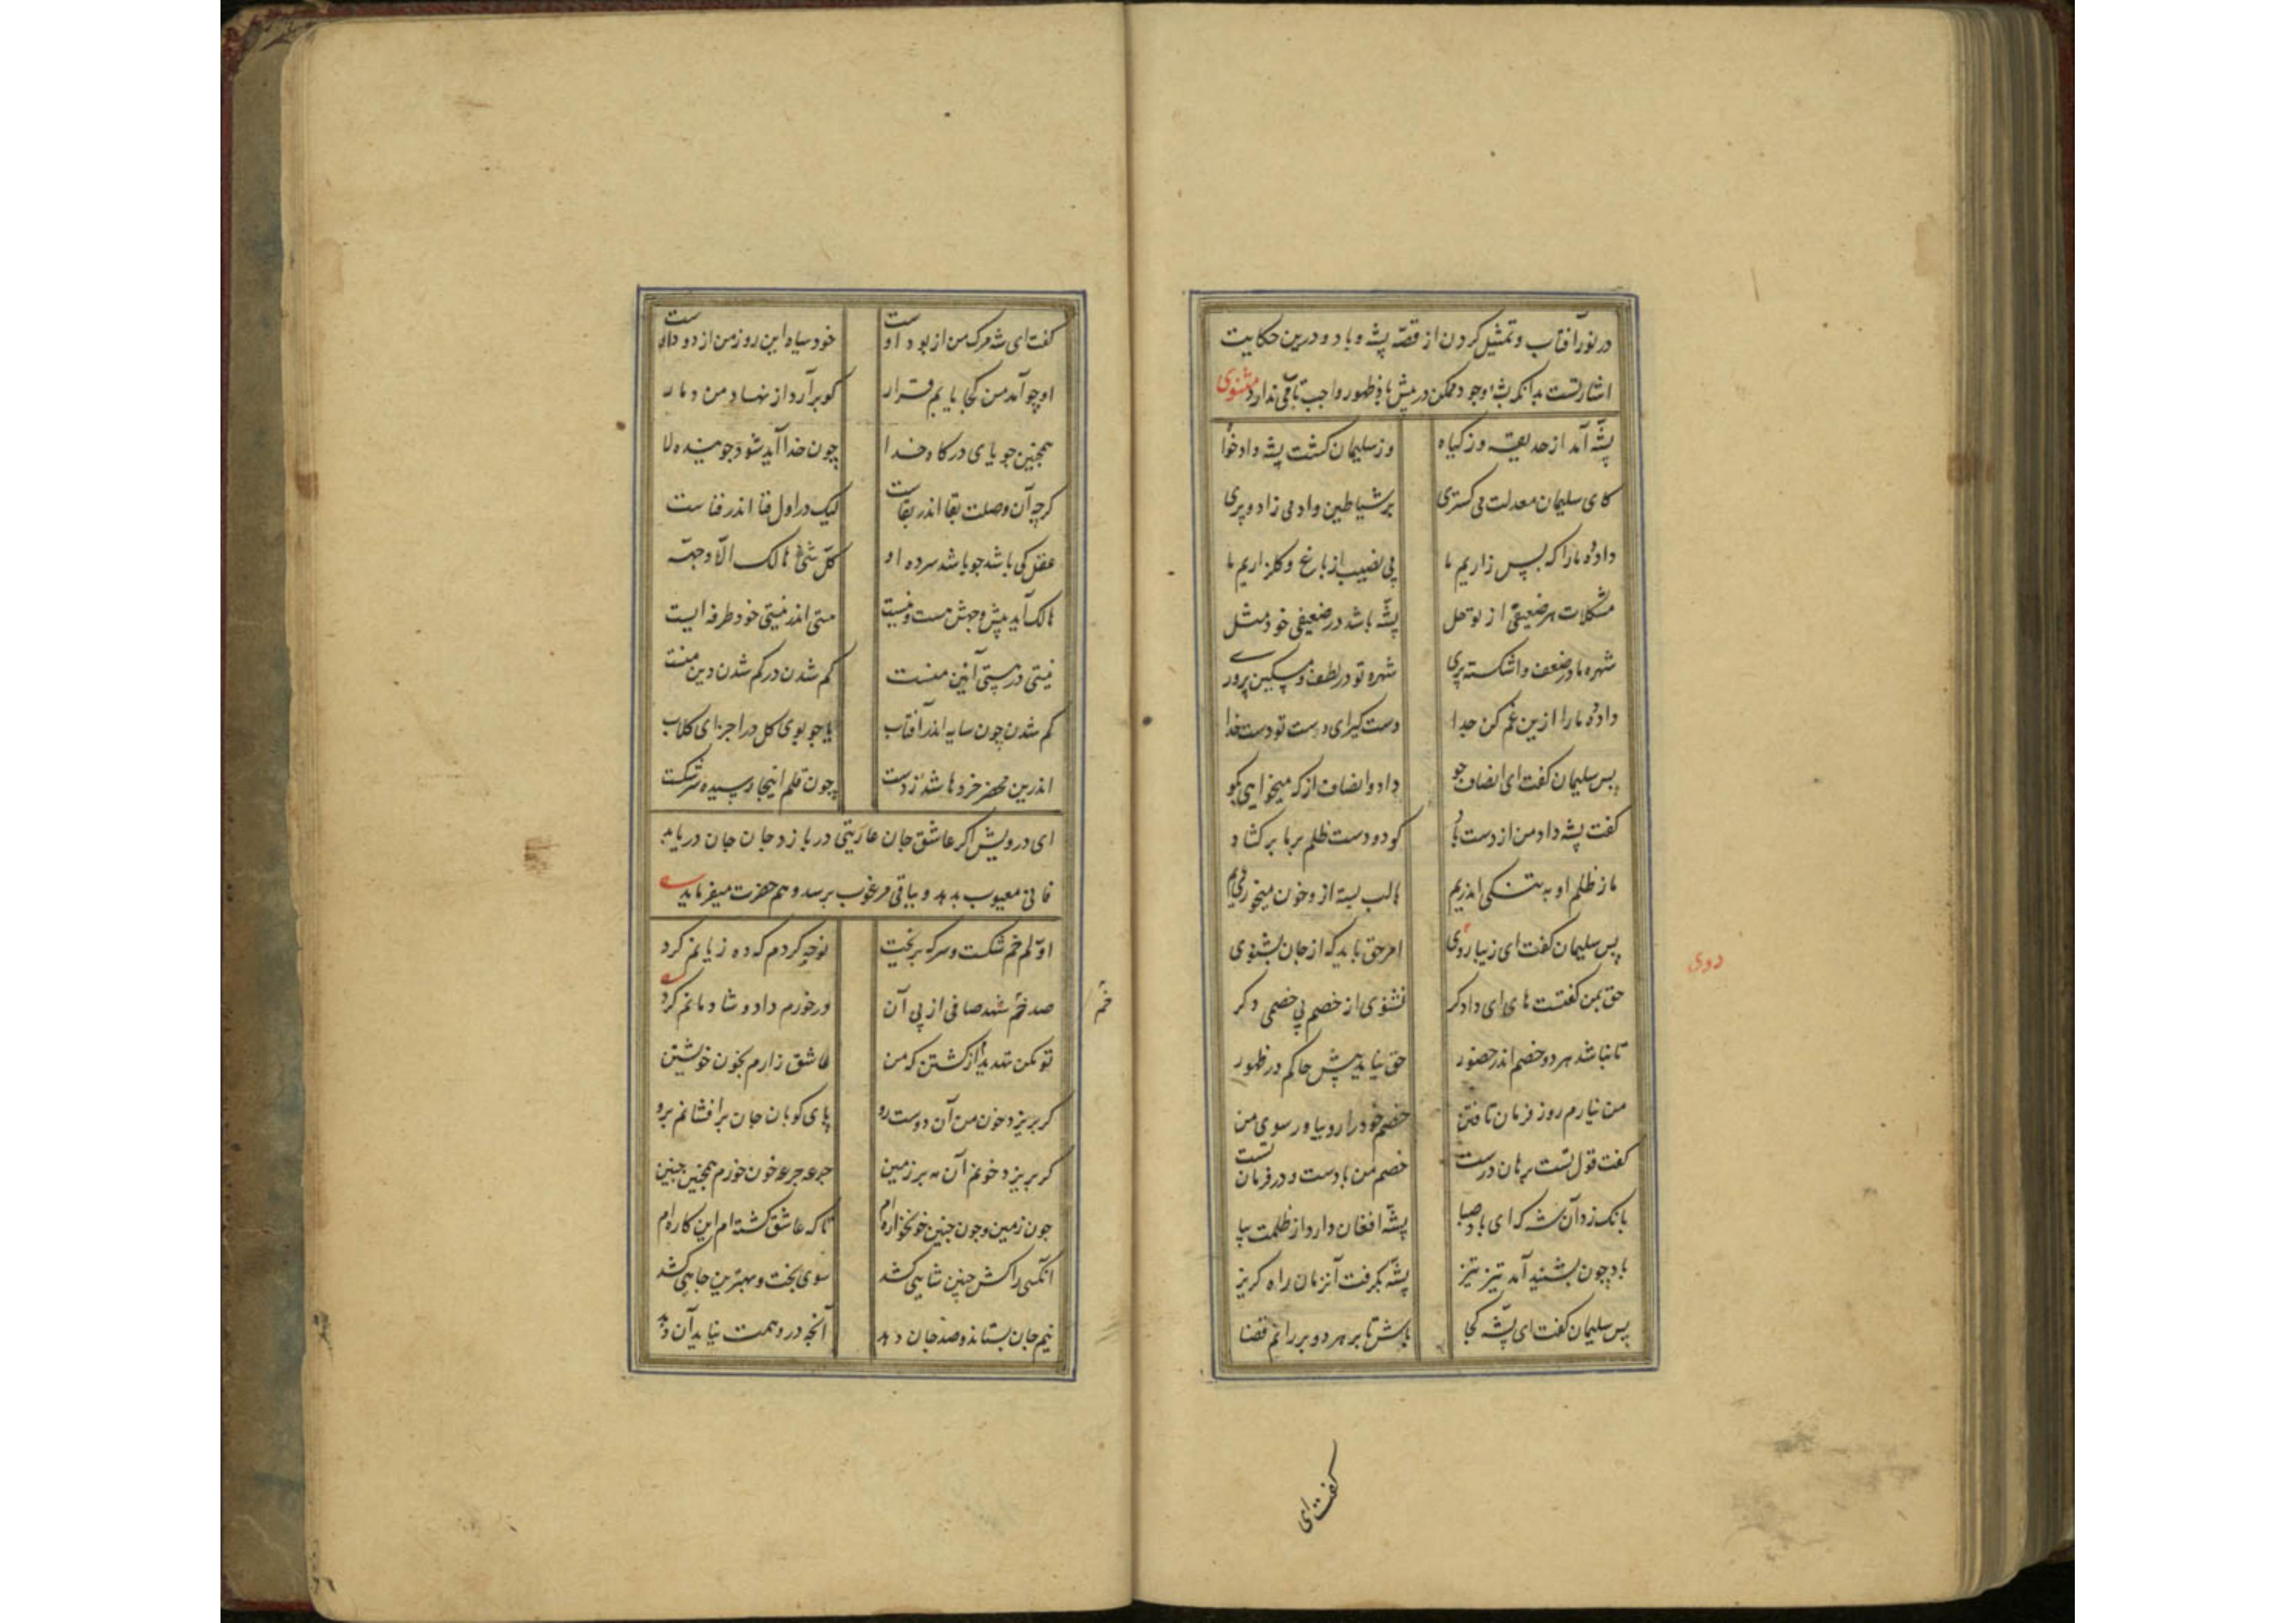 در نور آفتاب و تمثیل کردن از قصّهٔ پشه و باد و درین حکایت
اشارتست بدانکه پشهٔ وجود ممکن در پیش باد ظهور واجب تاب ندارد مثنوی
پشّه آمد از حدیقه وز کیاه وز سلیمان کشت پشه دادخواه
کای سلیمان معدلت می کستری بر شیاطین و ادمی زاد و پری
داد ده ما را که بس زاریم ما بی نصیب از باغ و کلزاریم ما
مشکلات هر ضعیفی از تو حل پشّه باشد در ضعیفی خود مثل
شهره ما در ضعف و اشکسته پری شهره تو در لطف و مسکین پروری
داد ده ما را ازین غم کن جدا دست کیر ای دست تو دست خدا
پس سلیمان کفت ای انصاف جو داد و انصاف از که میخواهی بکو
کفت پشه داد من از دست باد کو دو دست ظلم بر ما بر کشاد
ما ز ظلم او به تنکی اندریم با لب بسته ازو خون میخوریم
پس سلیمان کفت ای زیبا روی امر حق باید که از جان بشنوی
دوی
حق بمن کفتست هان ای دادکر نشنوی از خصم بی خصمی دکر
تا نباشد هر دو خصم اندر حضور حق نیاید پیش حاکم در ظهور
من نیارم روز فرمان تافتن خصم خود را رو بیاور سوی من
کفت قول تست برهان درست خصم من بادست و در فرمان تست
بانک زد آن شه که ای باد صبا پشّه افغان دارد از ظلمت بیا
باد چون بشنید آمد تیز تیز پشّه بکرفت آنزمان راه کریز
پس سلیمان کفت ای پشّه کجا باش تا بر هر دو بر رانم قضا
کفت ای
کفت ای شه مرک من از بود اوست خود سیاه این روز من از دود اوست
او چو آمد من کجا یابم قرار کو برآرد از نهاد من دمار
همچنین جویای درکاه خدا چون خدا آید شود جوینده لا
کرچه آن وصلت بقا اندر بقاست لیک در اول فنا اندر فناست
عقل کی باشد چو باشد سرده او کلّ شئ هالک الّا وجهه
هالک آید پیش وجهش هست و نیست هستی اندر نیستی خود طرفه ایست
نیستی در هستی آیین منست کم شدن در کم شدن دین منست
کم شدن چون سایه اندر آفتاب یا چو بوی کل در اجزای کلاب
اندرین محضر خردها شد ز دست چون قلم اینجا رسیده سر شکست
ای درویش اکر عاشق جان عاریتی در بازد جان جان دریابد
فانی معیوب بدهد و بباقی مرغوب برسد و هم حضرت میفرماید
او کلم خم شکست و سرکه بریخت نوحه کردم که ده زیانم کرد
صد خم شهد صافی از پی آن در خورم داد و شادمانم کرد
خم
تو مکن تهدید از کشتن که من عاشق زارم بخون خویشتن
کر بریزد خون من آن دوست رو پای کوبان جان برافشانم برو
کر بریزد خونم آن مه بر زمین جرعه جرعه خون خورم همچنین جنین
چون زمین و چون جنین خونخواره ام تا که عاشق کشته ام این کاره ام
آنکسی را کش چنین شاهی کشد سوی بخت و بهترین جاهی کشد
نیم جان بستاند و صد جان دهد آنچه در وهمت نیاید آن دهد